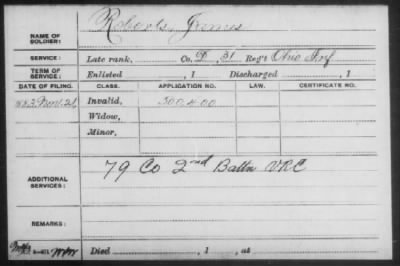 Roberts, James
NAME OF SOLDIER:
SERVICE: Late rank, Co. D, 31 Reg't Ohio Inf
TERM OF SERVICE: Enlisted , 1 Discharged , 1
DATE OF FILING. CLASS. APPLICATION NO. LAW. CERTIFICATE NO.
1883 Nov. 28, Invalid, 500400
Widow,
Minor,
ADDITIONAL SERVICES: 79 Co 2nd Battn VRC
REMARKS:
Died , 1 , at